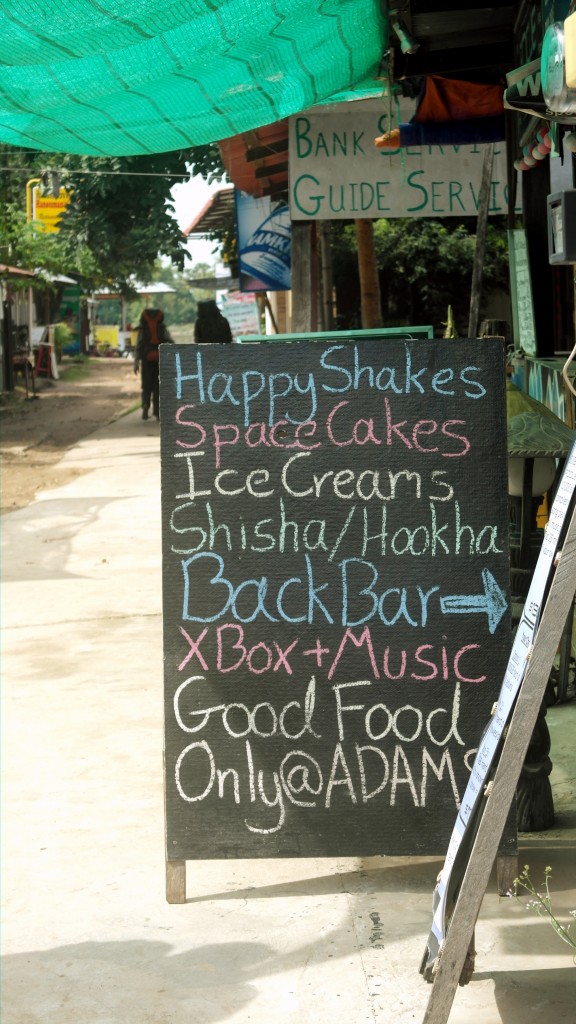 BANK
GUIDE SERVI
Happy Shakes
Space Cakes
Ice Creams
Shisha/Hookha
Back Bar
XBox + Music
Good Food
Only @ ADAMS